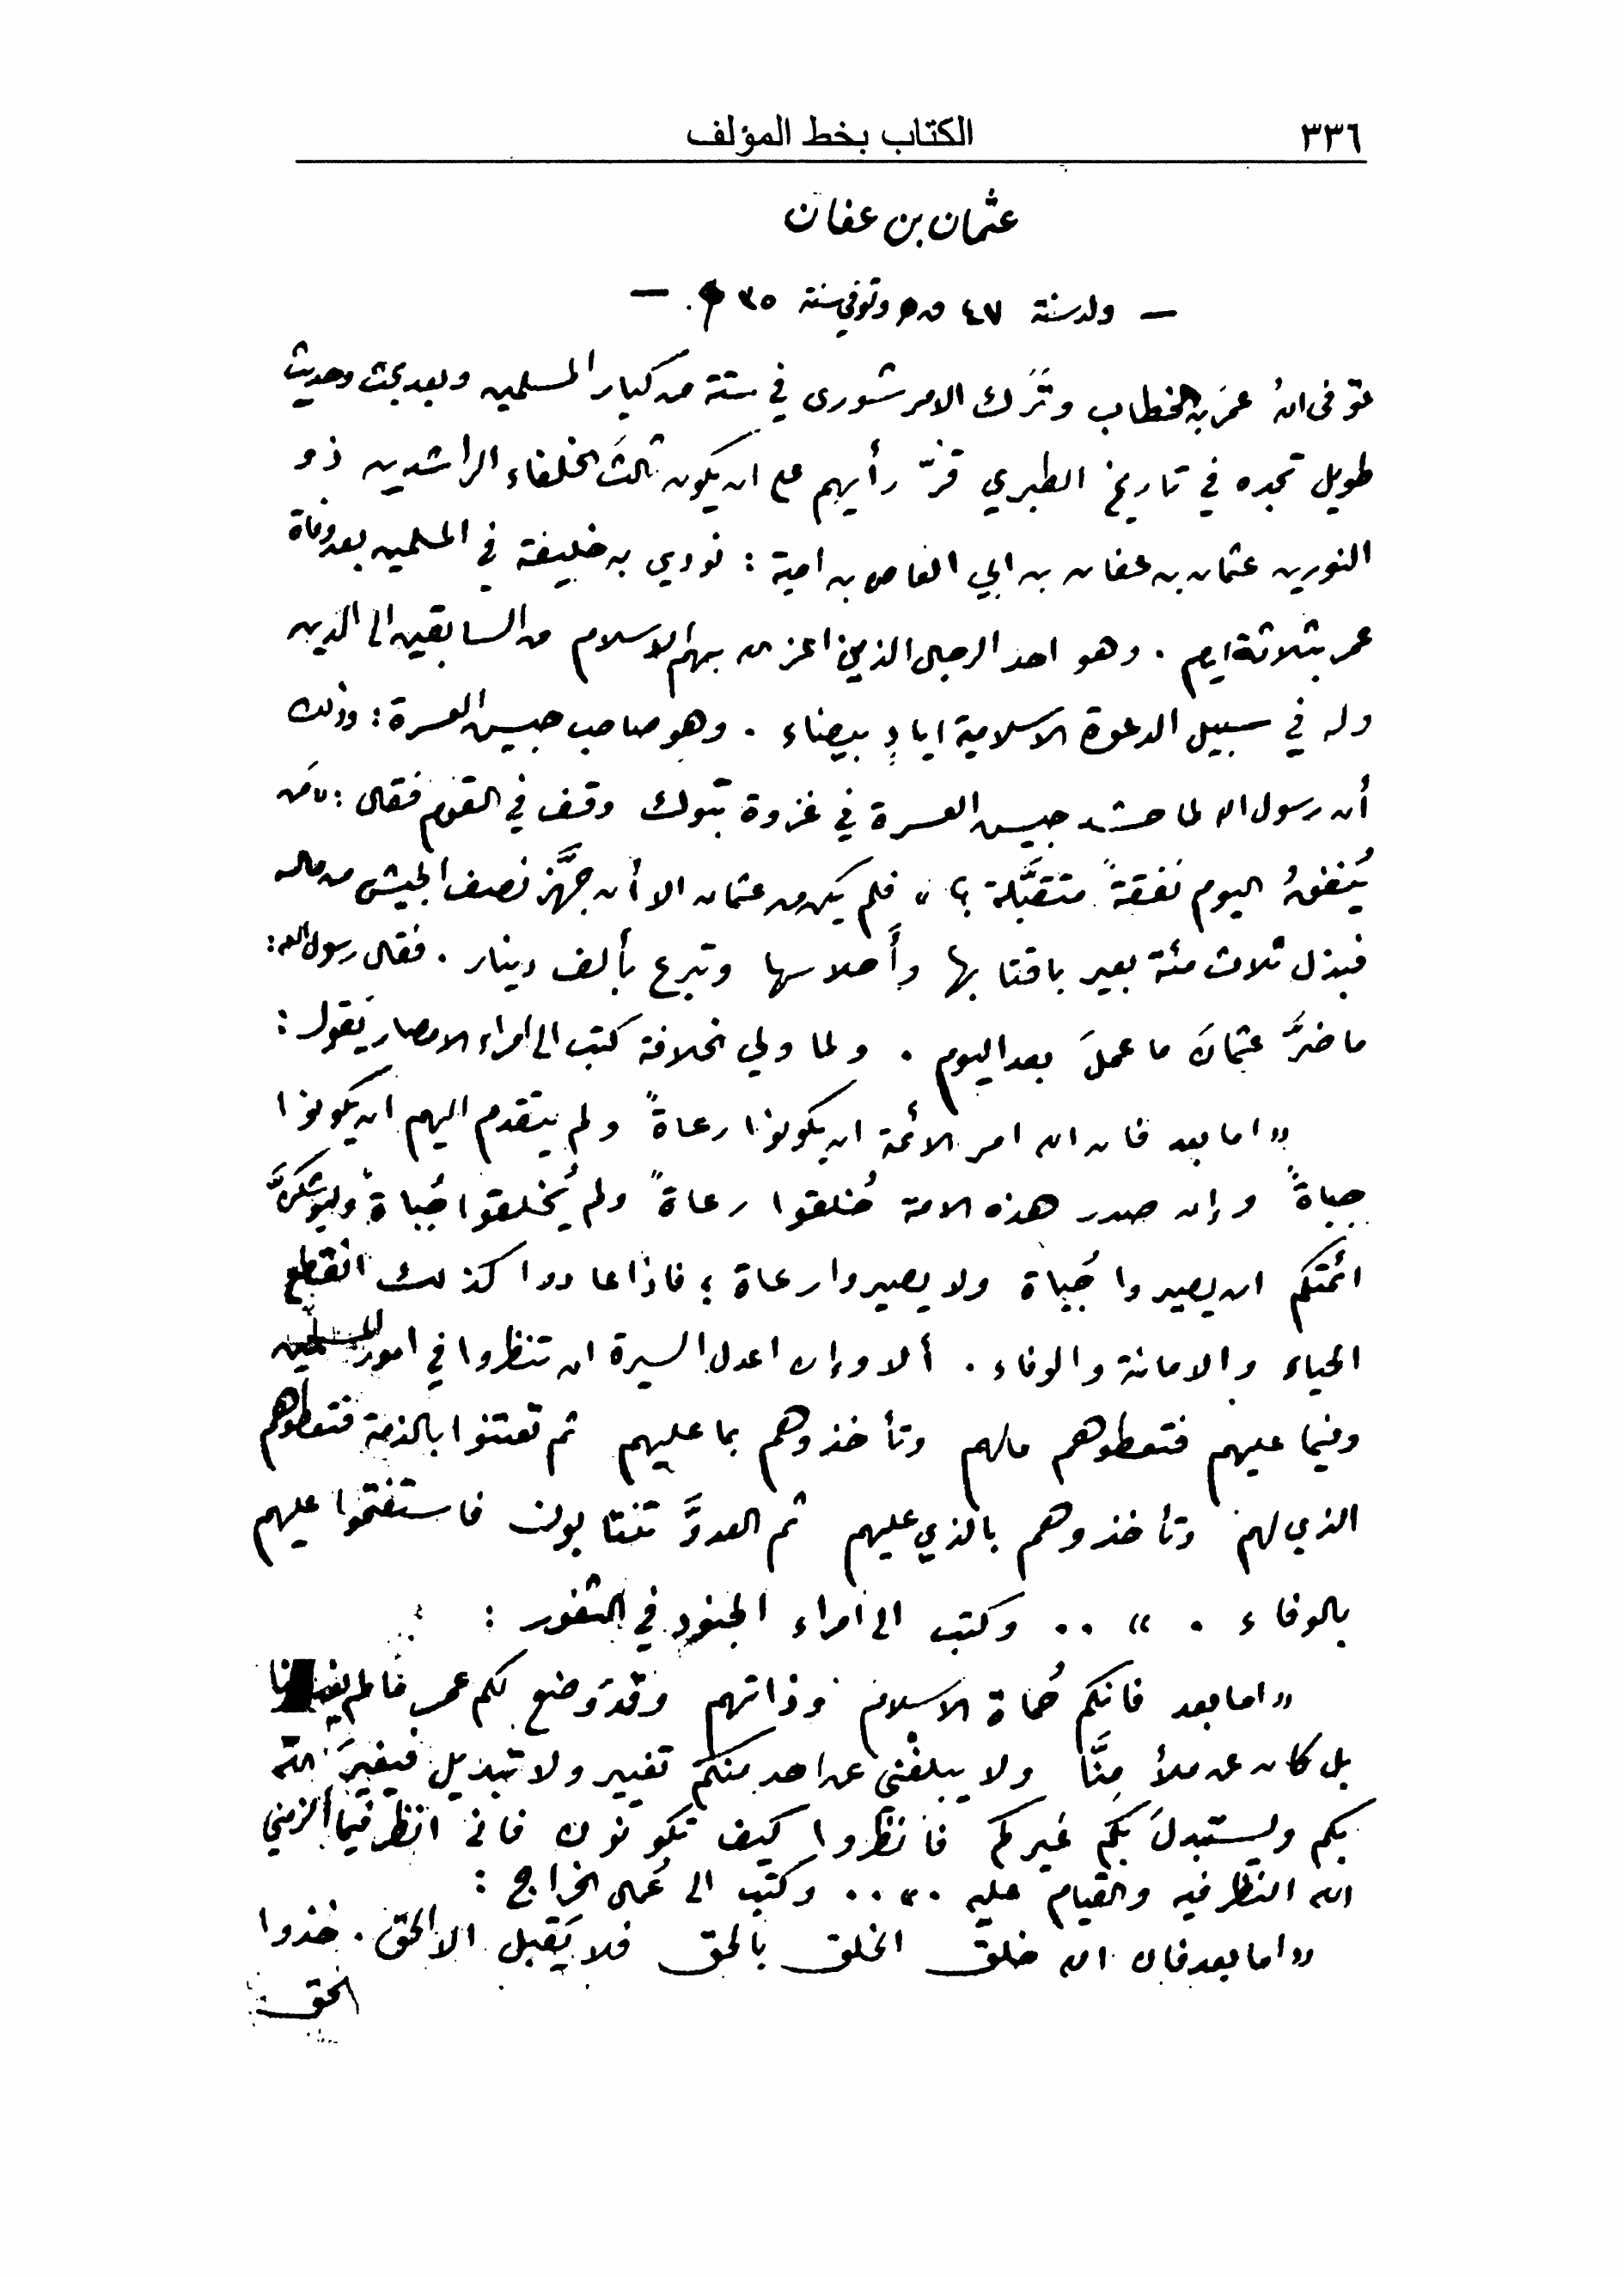 ٣٣٦ الكتاب بخط المؤلف
عثمان بن عفان
— ولد سنة ٤٧ ق ه وتوفي سنة ٣٥ ه . —
توفى الله عمرَ بن الخطاب وتَرَك الامر شورى في ستة من كبار المسلمين وبعد بحث وحديث
طويل تجده في تاريخ الطبري قرَّ رأيهم على ان يكون ثالثَ الخلفاء الراشدين ذو
النورين عثمان بن عفان بن ابي العاص بن امية : نودي به خليفة في المسلمين بعد وفاة
عمر بثلاثة ايام . وهو احد الرجال الذين اعز الله بهم الاسلام من السابقين الى الدين
وله في سبيل الدعوة الاسلامية ايادٍ بيضاء . وهو صاحب جيش العسرة : وذلك
أن رسول الله لما حشد جيش العسرة في غزوة تبوك وقف في القوم فقال : «مَن
يُنفقُ اليوم نفقةً متقبَّلة ؟ » فلم يكن من عثمان الا أن جهَّز نصف الجيش من ماله
فبذل ثلاث مئة بعير باقتابها وأحلاسها وتبرع بألف دينار . فقال رسول الله :
ما ضرَّ عثمانَ ما عملَ بعد اليوم . ولما ولي الخلافة كتب الى امراء الامصار يَقول :
« اما بعد فان الله امر الائمة ان يكونوا رعاةً ولم يتقدم اليهم ان يكونوا
جباةً وإن صدر هذه الامة خُلقوا رعاةً ولم يُخلقوا جُباة وليوشكنَّ
ائمتكم ان يصيروا جُباة ولا يصيروا رعاة ؛ فاذا عادوا كذلك انقطع
الحياء والامانة والوفاء . ألا وإن اعدل السيرة ان تنظروا في امور المسلمين
وفيما عليهم فتعطوهم مالهم وتأخذوهم بما عليهم ثم تعتنوا بالذمة فتعطوهم
الذي لهم وتأخذوهم بالذي عليهم ثم العدوَّ تنتابون فاستفتحوا عليهم
بالوفاء . » .. وكتب الى امراء الجنود في الثغور :
« اما بعد فانكم حُماة الاسلام وذاتهم وقد وضع لكم عمر ما لم يغب عنا
بل كان عن ملأ مِنَّا ولا يبلغني عن احد منكم تغيير ولا تبديل فيغيرَ الله
بكم ويستبدلَ بكم غيركم فانظروا كيف تكونون فاني انظر فيما الزمني
الله النظر فيه والقيام عليه .» .. وكتب الى عُمال الخراج :
« اما بعد فان الله خلق الخلق بالحق فلا يَقبل الا الحق . خذوا
الحق